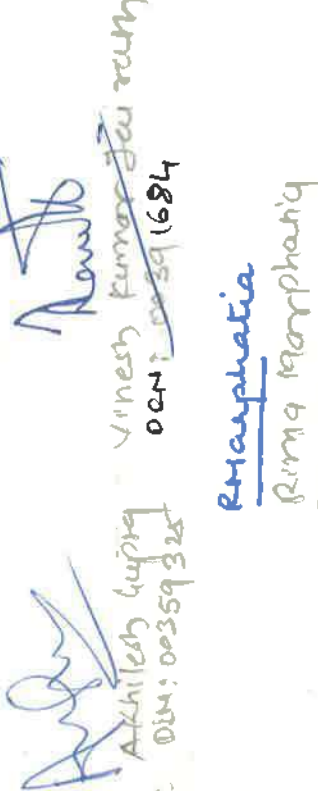 Akhilesh Gupta
DIN: 00359325
Vinesh Kumar Jairath
DIN: 00391684
RMarphatia
Rima Marphatia